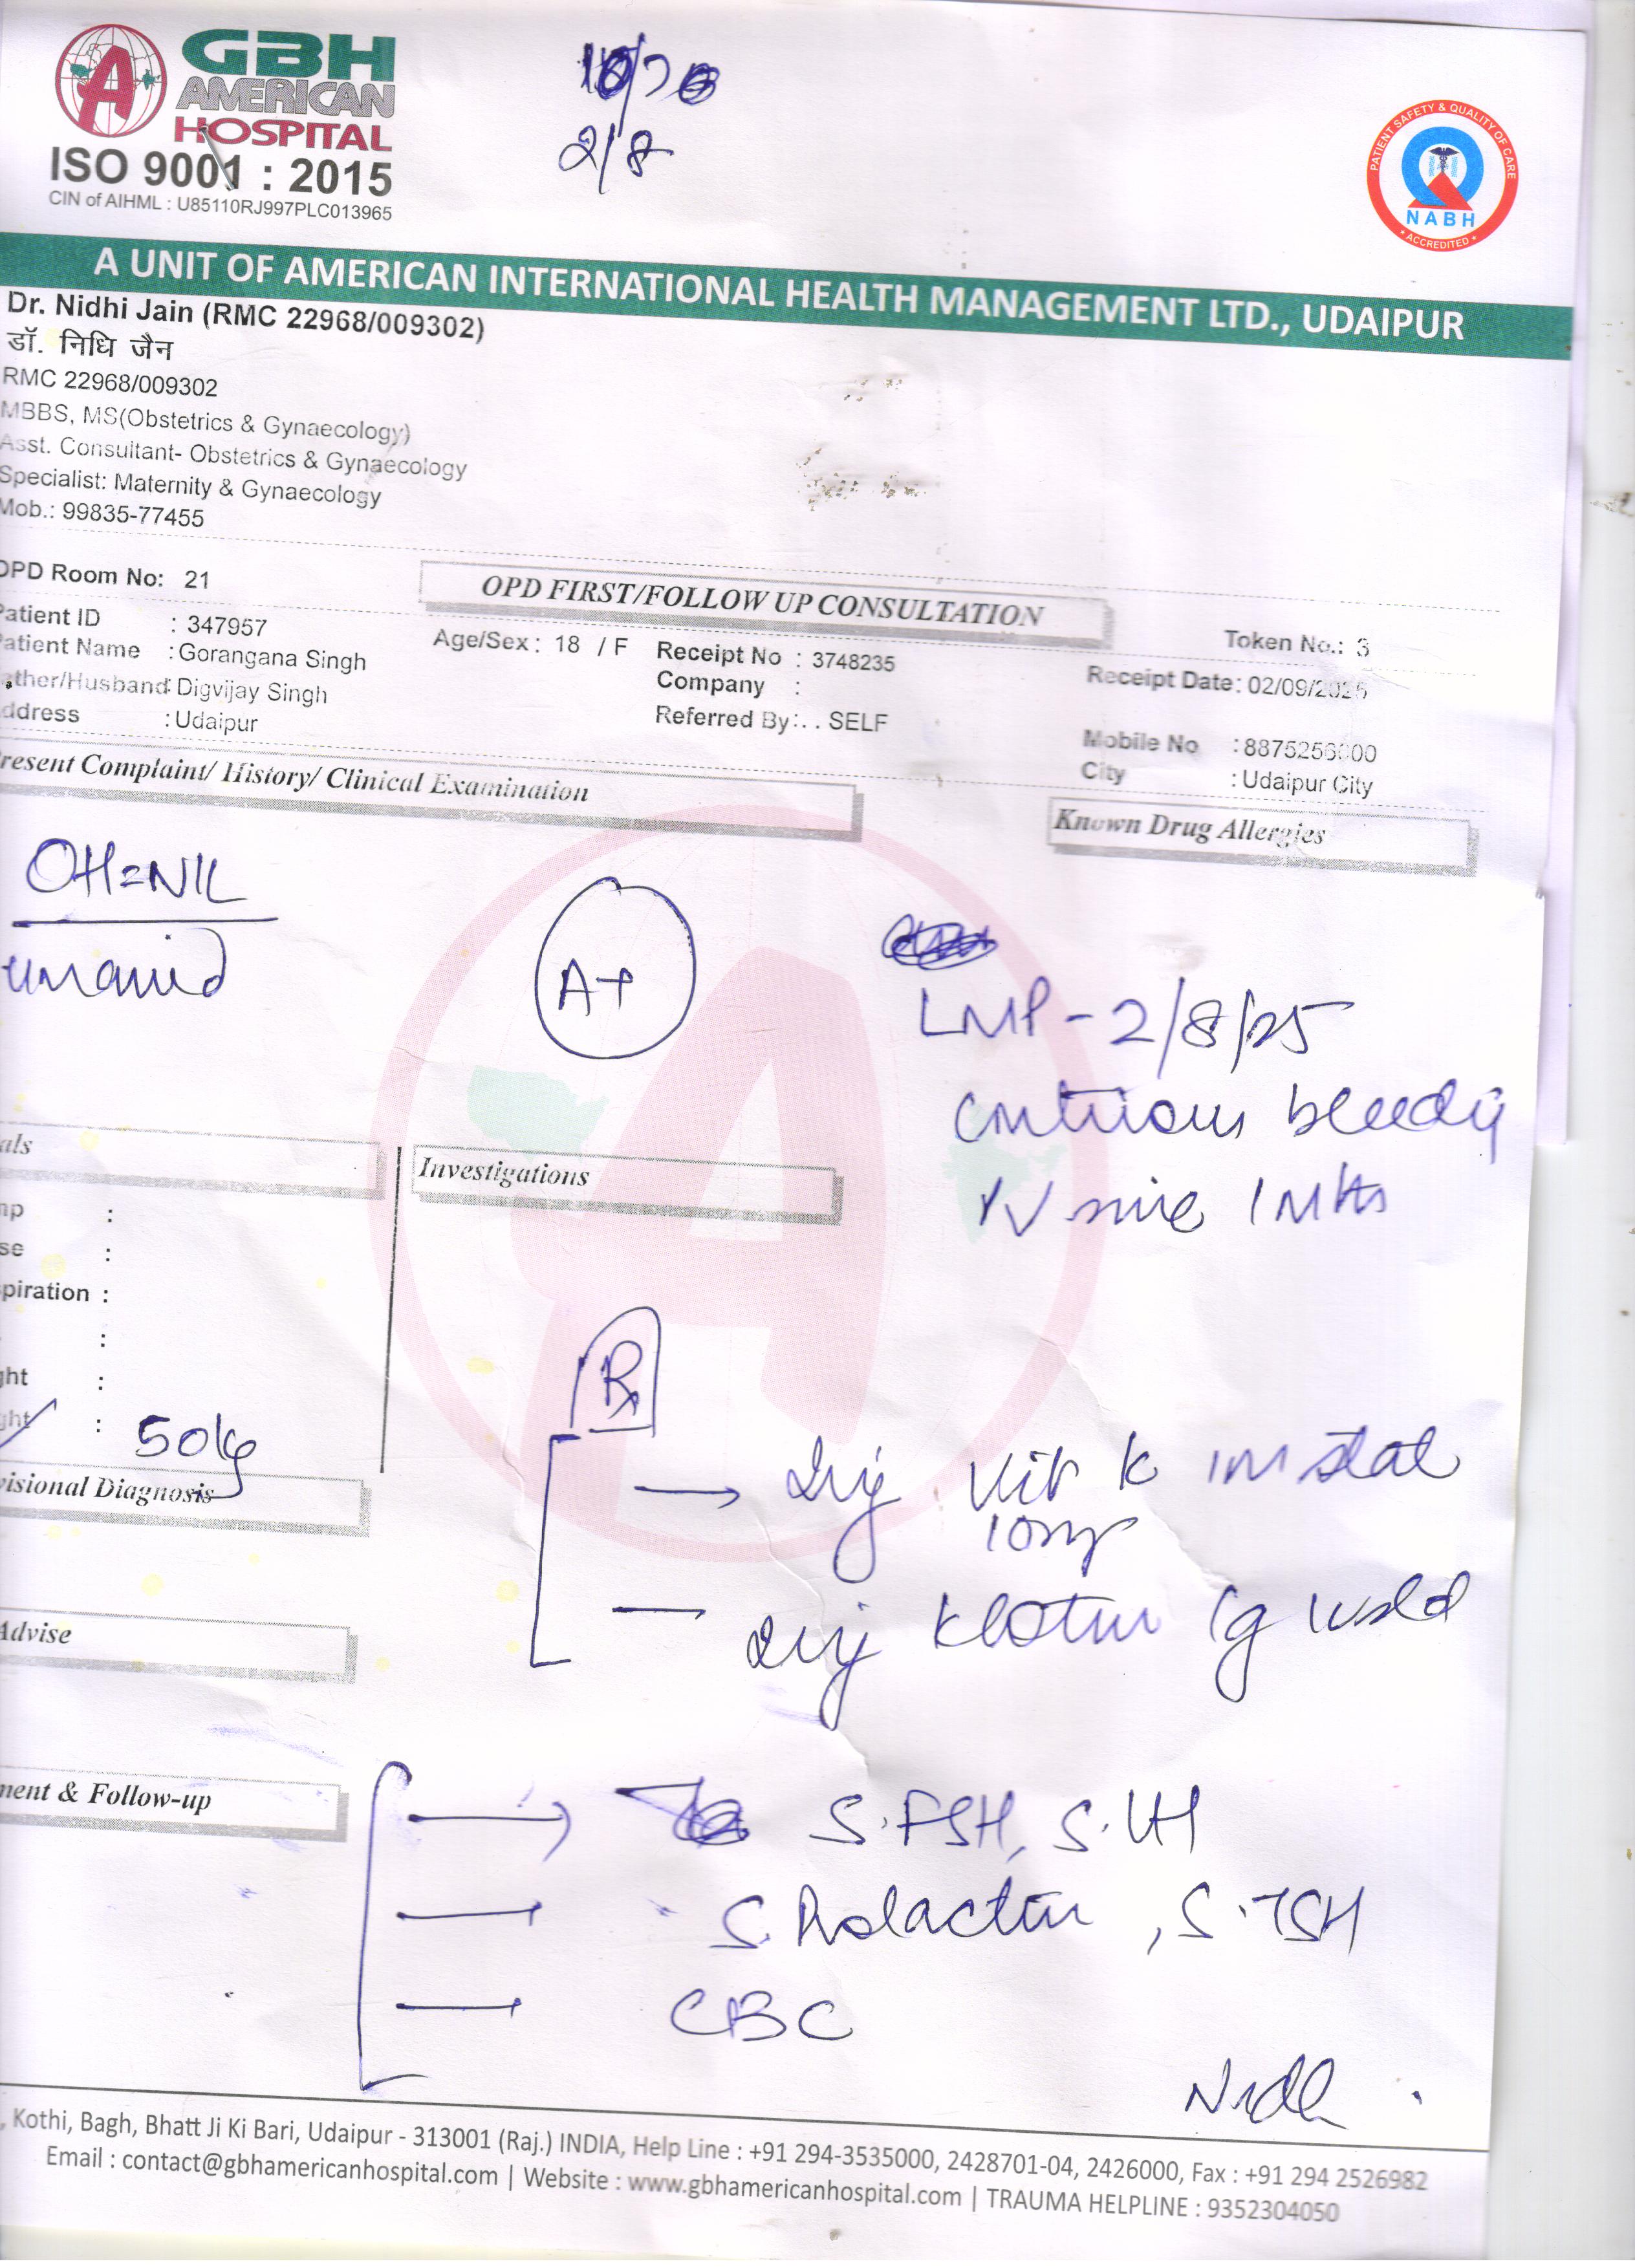 GBH
AMERICAN
HOSPITAL
ISO 9001 : 2015
CIN of AIHML : U85110RJ997PLC013965
2/8
PATIENT SAFETY & QUALITY OF CARE
NABH
ACCREDITED
A UNIT OF AMERICAN INTERNATIONAL HEALTH MANAGEMENT LTD., UDAIPUR
Dr. Nidhi Jain (RMC 22968/009302)
डॉ. निधि जैन
RMC 22968/009302
MBBS, MS(Obstetrics & Gynaecology)
Asst. Consultant- Obstetrics & Gynaecology
Specialist: Maternity & Gynaecology
Mob.: 99835-77455
OPD Room No: 21
OPD FIRST/FOLLOW UP CONSULTATION
Token No.: 3
Patient ID : 347957
Age/Sex : 18 / F Receipt No : 3748235
Receipt Date: 02/09/2025
Patient Name : Gorangana Singh
Company :
ather/Husband: Digvijay Singh
Referred By: . . SELF
Mobile No :
ddress : Udaipur
City : Udaipur City
resent Complaint/ History/ Clinical Examination
Known Drug Allergies
OH=NIL
A+
LMP - 2/8/25
bleedy
als
Investigations
mp :
se :
piration :
:
ght :
ght : 50kg
R
visional Diagnosis
Inj Vit K IM stat
10mg
Advise
Inj 1g
ment & Follow-up
S.FSH, S.LH
S.Prolactin, S.TSH
CBC
Nidhi
, Kothi, Bagh, Bhatt Ji Ki Bari, Udaipur - 313001 (Raj.) INDIA, Help Line : +91 294-3535000, 2428701-04, 2426000, Fax : +91 294 2526982
Email : contact@gbhamericanhospital.com | Website : www.gbhamericanhospital.com | TRAUMA HELPLINE : 9352304050